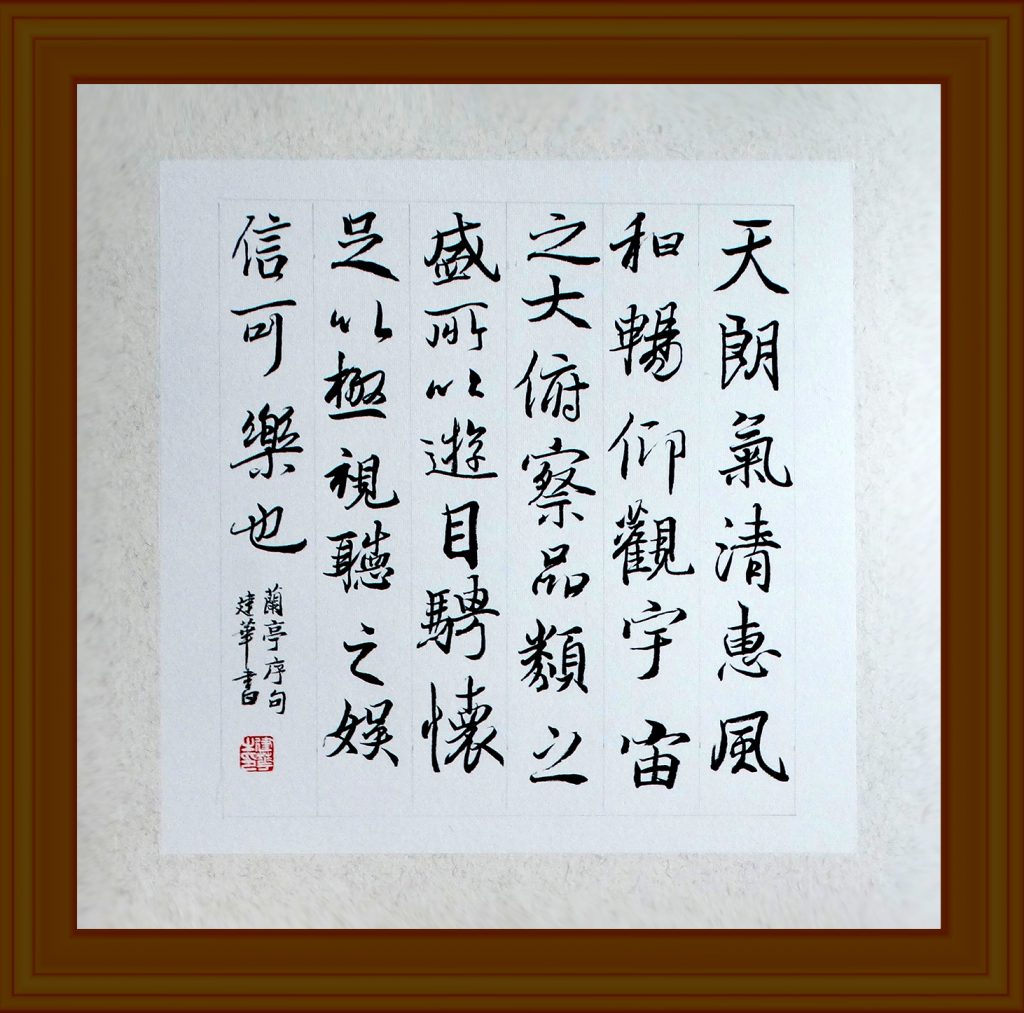 天朗氣清惠風
和暢仰觀宇宙
之大俯察品類之
盛所以遊目騁懷
足以極視聽之娛
信可樂也
蘭亭序句
建華書